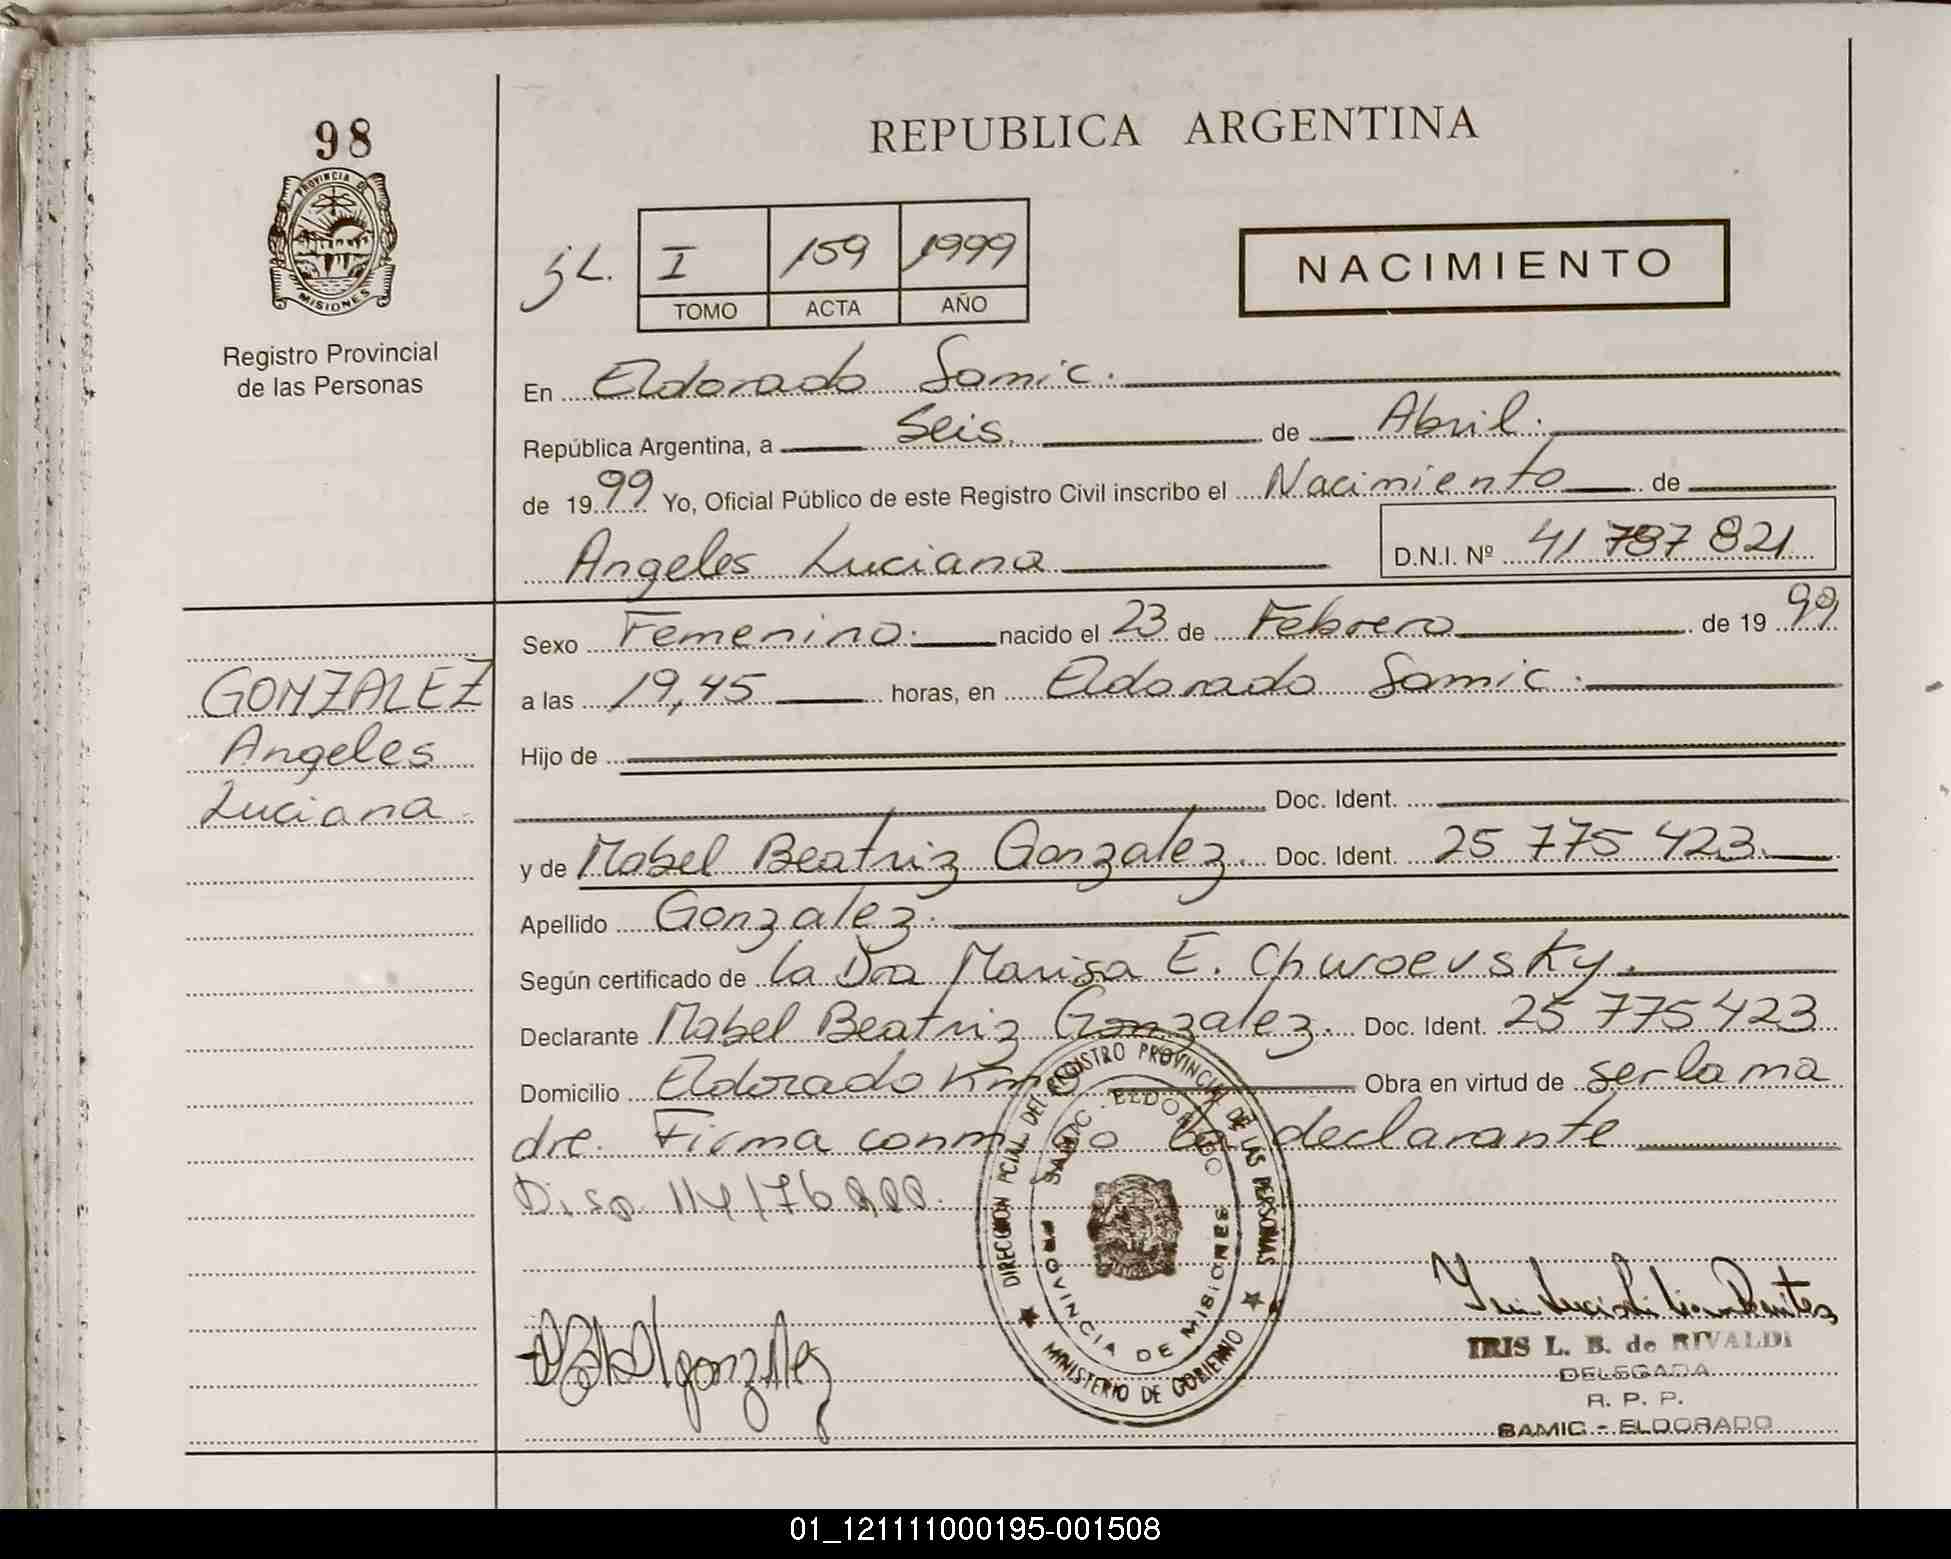 98
REPUBLICA ARGENTINA
PROVINCIA DE
MISIONES
Registro Provincial
de las Personas
I 159 1999
TOMO ACTA AÑO
NACIMIENTO
En Eldorado Samic.
República Argentina, a Seis de Abril.
de 1999 Yo, Oficial Público de este Registro Civil inscribo el Nacimiento de
Angeles Luciana D.N.I. Nº 41 787 821
Sexo Femenino. nacido el 23 de Febrero de 1999
GONZALEZ
Angeles
Luciana
a las 19,45 horas, en Eldorado Samic.
Hijo de
Doc. Ident.
y de Mabel Beatriz Gonzalez. Doc. Ident. 25 775 423.
Apellido Gonzalez.
Según certificado de la Dra Marisa E. Churoevsky.
Declarante Mabel Beatriz Gonzalez. Doc. Ident. 25 775 423
Domicilio Eldorado Km Obra en virtud de ser la ma
dre. Firma conmigo la declarante
Disp. 114/76
DIRECCION PCIAL. DEL REGISTRO PROVINCIAL DE LAS PERSONAS
SAMIC - ELDORADO
PROVINCIA DE MISIONES
MINISTERIO DE GOBIERNO
IRIS L. B. de RIVALDI
DELEGADA
R. P. P.
SAMIC - ELDORADO
01_121111000195-001508